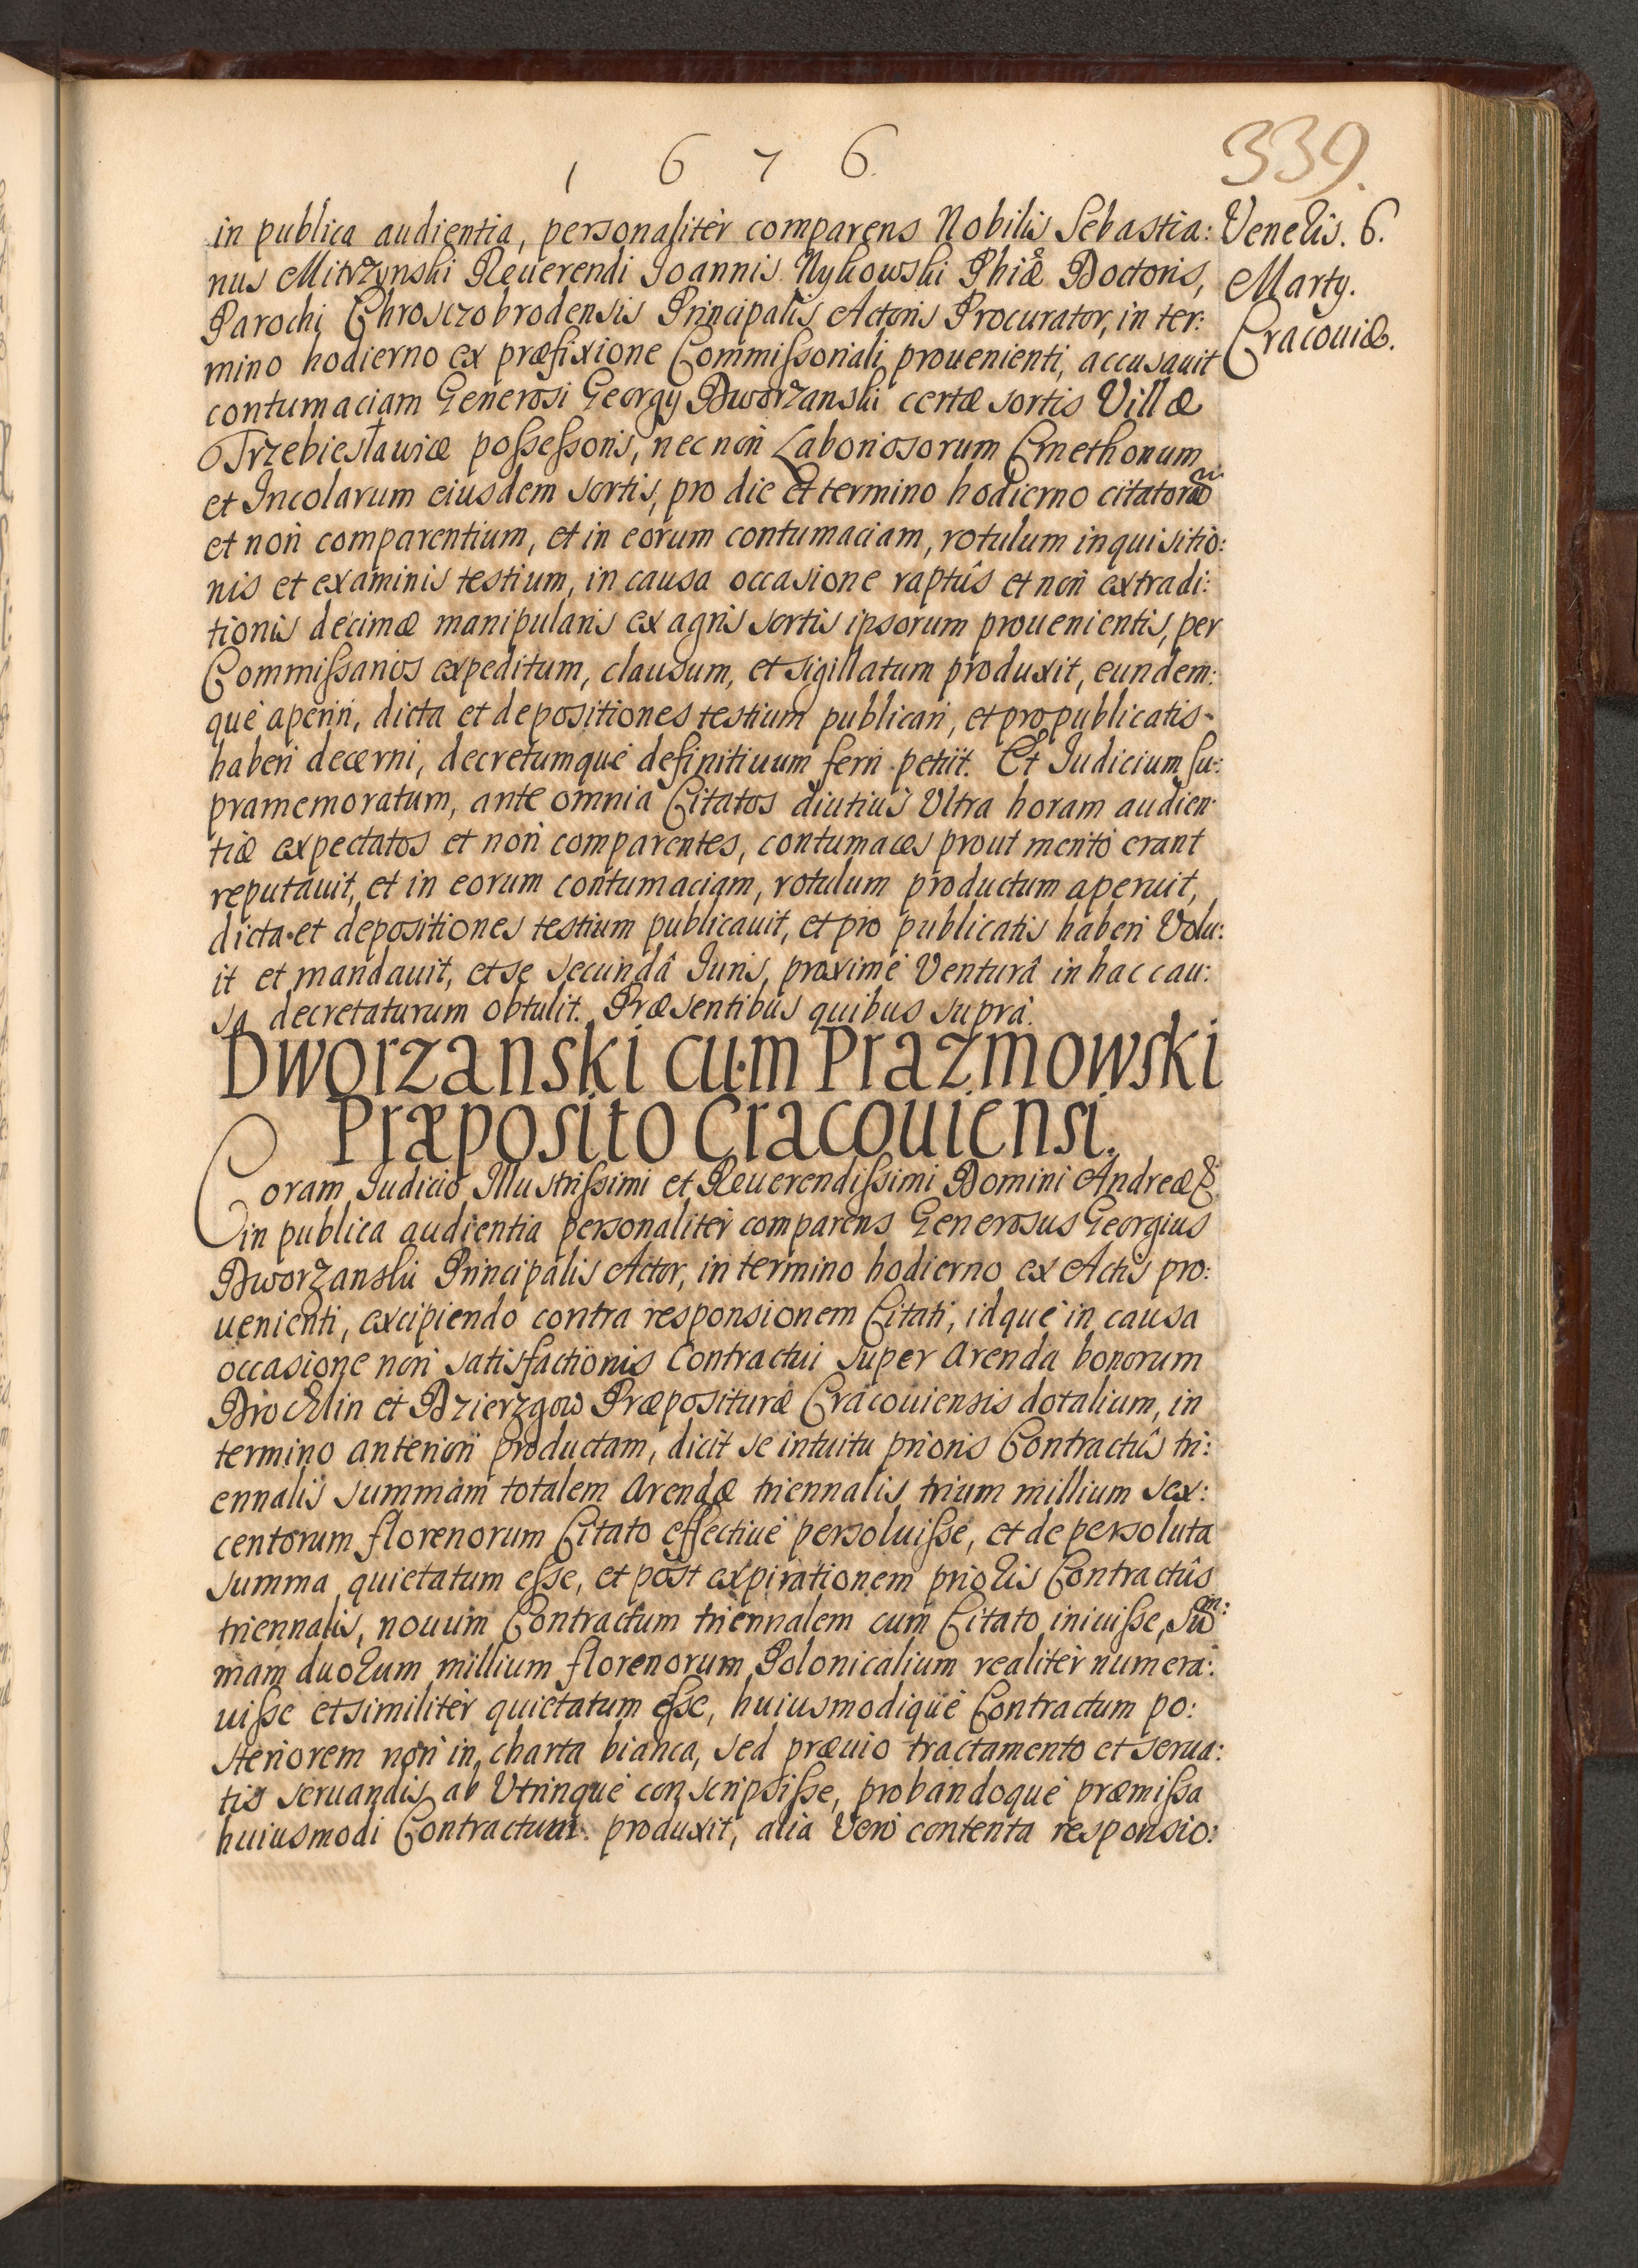 1 6 7 6.
339.
in publica audientia, personalitèr comparens Nobilis Sebastia:
nus Mitrzynski Reuerendi Ioannis Nykowski Phiæ Doctoris,
Parochi Chrosczobrodensis Principalis Actoris Procurator, in ter:
mino hodierno ex præfixione Commißoriali prouenienti, accusauit
contumaciam Generosi Georgij Dworzanski certæ sortis Villæ
Trzebiesławicæ poßeßoris, nec non Laboriosorum Cmethonum
et Incolarum eiusdem sortis, pro die et termino hodierno citatorũ
et non comparentium, et in eorum contumaciam, rotulum inquisitio:
nis et examinis testium, in causa occasione raptûs et non extradi:
tionis decimæ manipularis ex agris sortis ipsorum prouenientis, per
Commißarios expeditum, clausum, et sigillatum produxit, eundem:
què aperiri, dicta et depositiones testium publicari, et pro publicatis
haberi decerni, decretumquè definitiuum ferri petiit. Et Iudicium su:
pramemoratum, ante omnia Citatos diutiùs Vltra horam audien:
tiæ expectatos et non comparentes, contumaces prout meritò erant
reputauit, et in eorum contumaciam, rotulum productum aperuit,
dicta et depositiones testium publicauit, et pro publicatis haberi Volu:
it et mandauit, et se secundâ Iuris, proximè Venturâ in hac cau:
sa decretaturum obtulit. Præsentibus quibus suprà.
Veneris. 6.
Marty.
Cracouiæ.
Dworzanski cum Prazmowski
Præposito Cracouiensi.
Coram Iudicio Illustrißimi et Reuerendißimi Domini Andreæ &
in publica audientia personalitèr comparens Generosus Georgius
Dworzanski Principalis Actor, in termino hodierno ex Actis pro:
uenienti, excipiendo contra responsionem Citati, idquè in causa
occasione non satisfactionis Contractui super arenda bonorum
Drochlin et Dzierzgow Præposituræ Cracouiensis dotalium, in
termino anteriori productam, dicit se intuitu prioris Contractûs tri:
ennalis summam totalem arendæ triennalis trium millium sex:
centorum florenorum Citato effectiuè persoluiße, et de persoluta
summa quietatum eße, et post expirationem prioris Contractûs
triennalis, nouum Contractum triennalem cum Citato iniuiße, Sum:
mam duorum millium florenorum Polonicalium realitèr numera:
uiße et similitèr quietatum eße, huiusmodiquè Contractum po:
steriorem non in charta bianca, sed præuio tractamento et serua:
tis seruandis ab Vtrinquè conscripsiße, probandoquè præmißa
huiusmodi Contractum produxit, alia Verò contenta responsio: